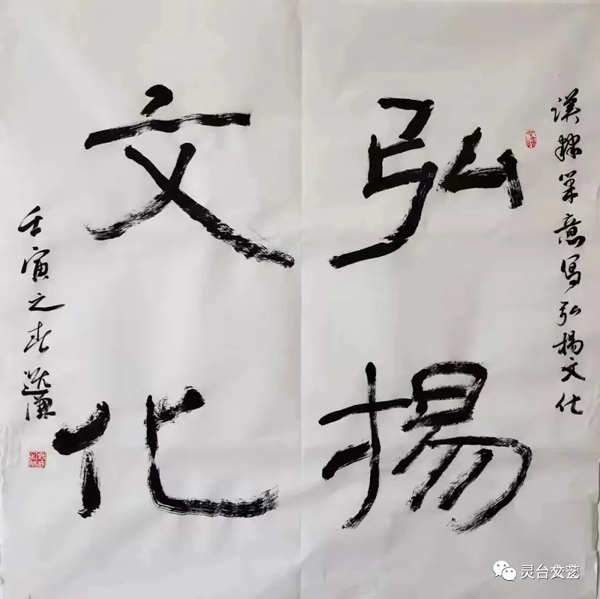 漢隸筆意写弘揚文化
弘揚
文化
壬寅之春
灵台文艺